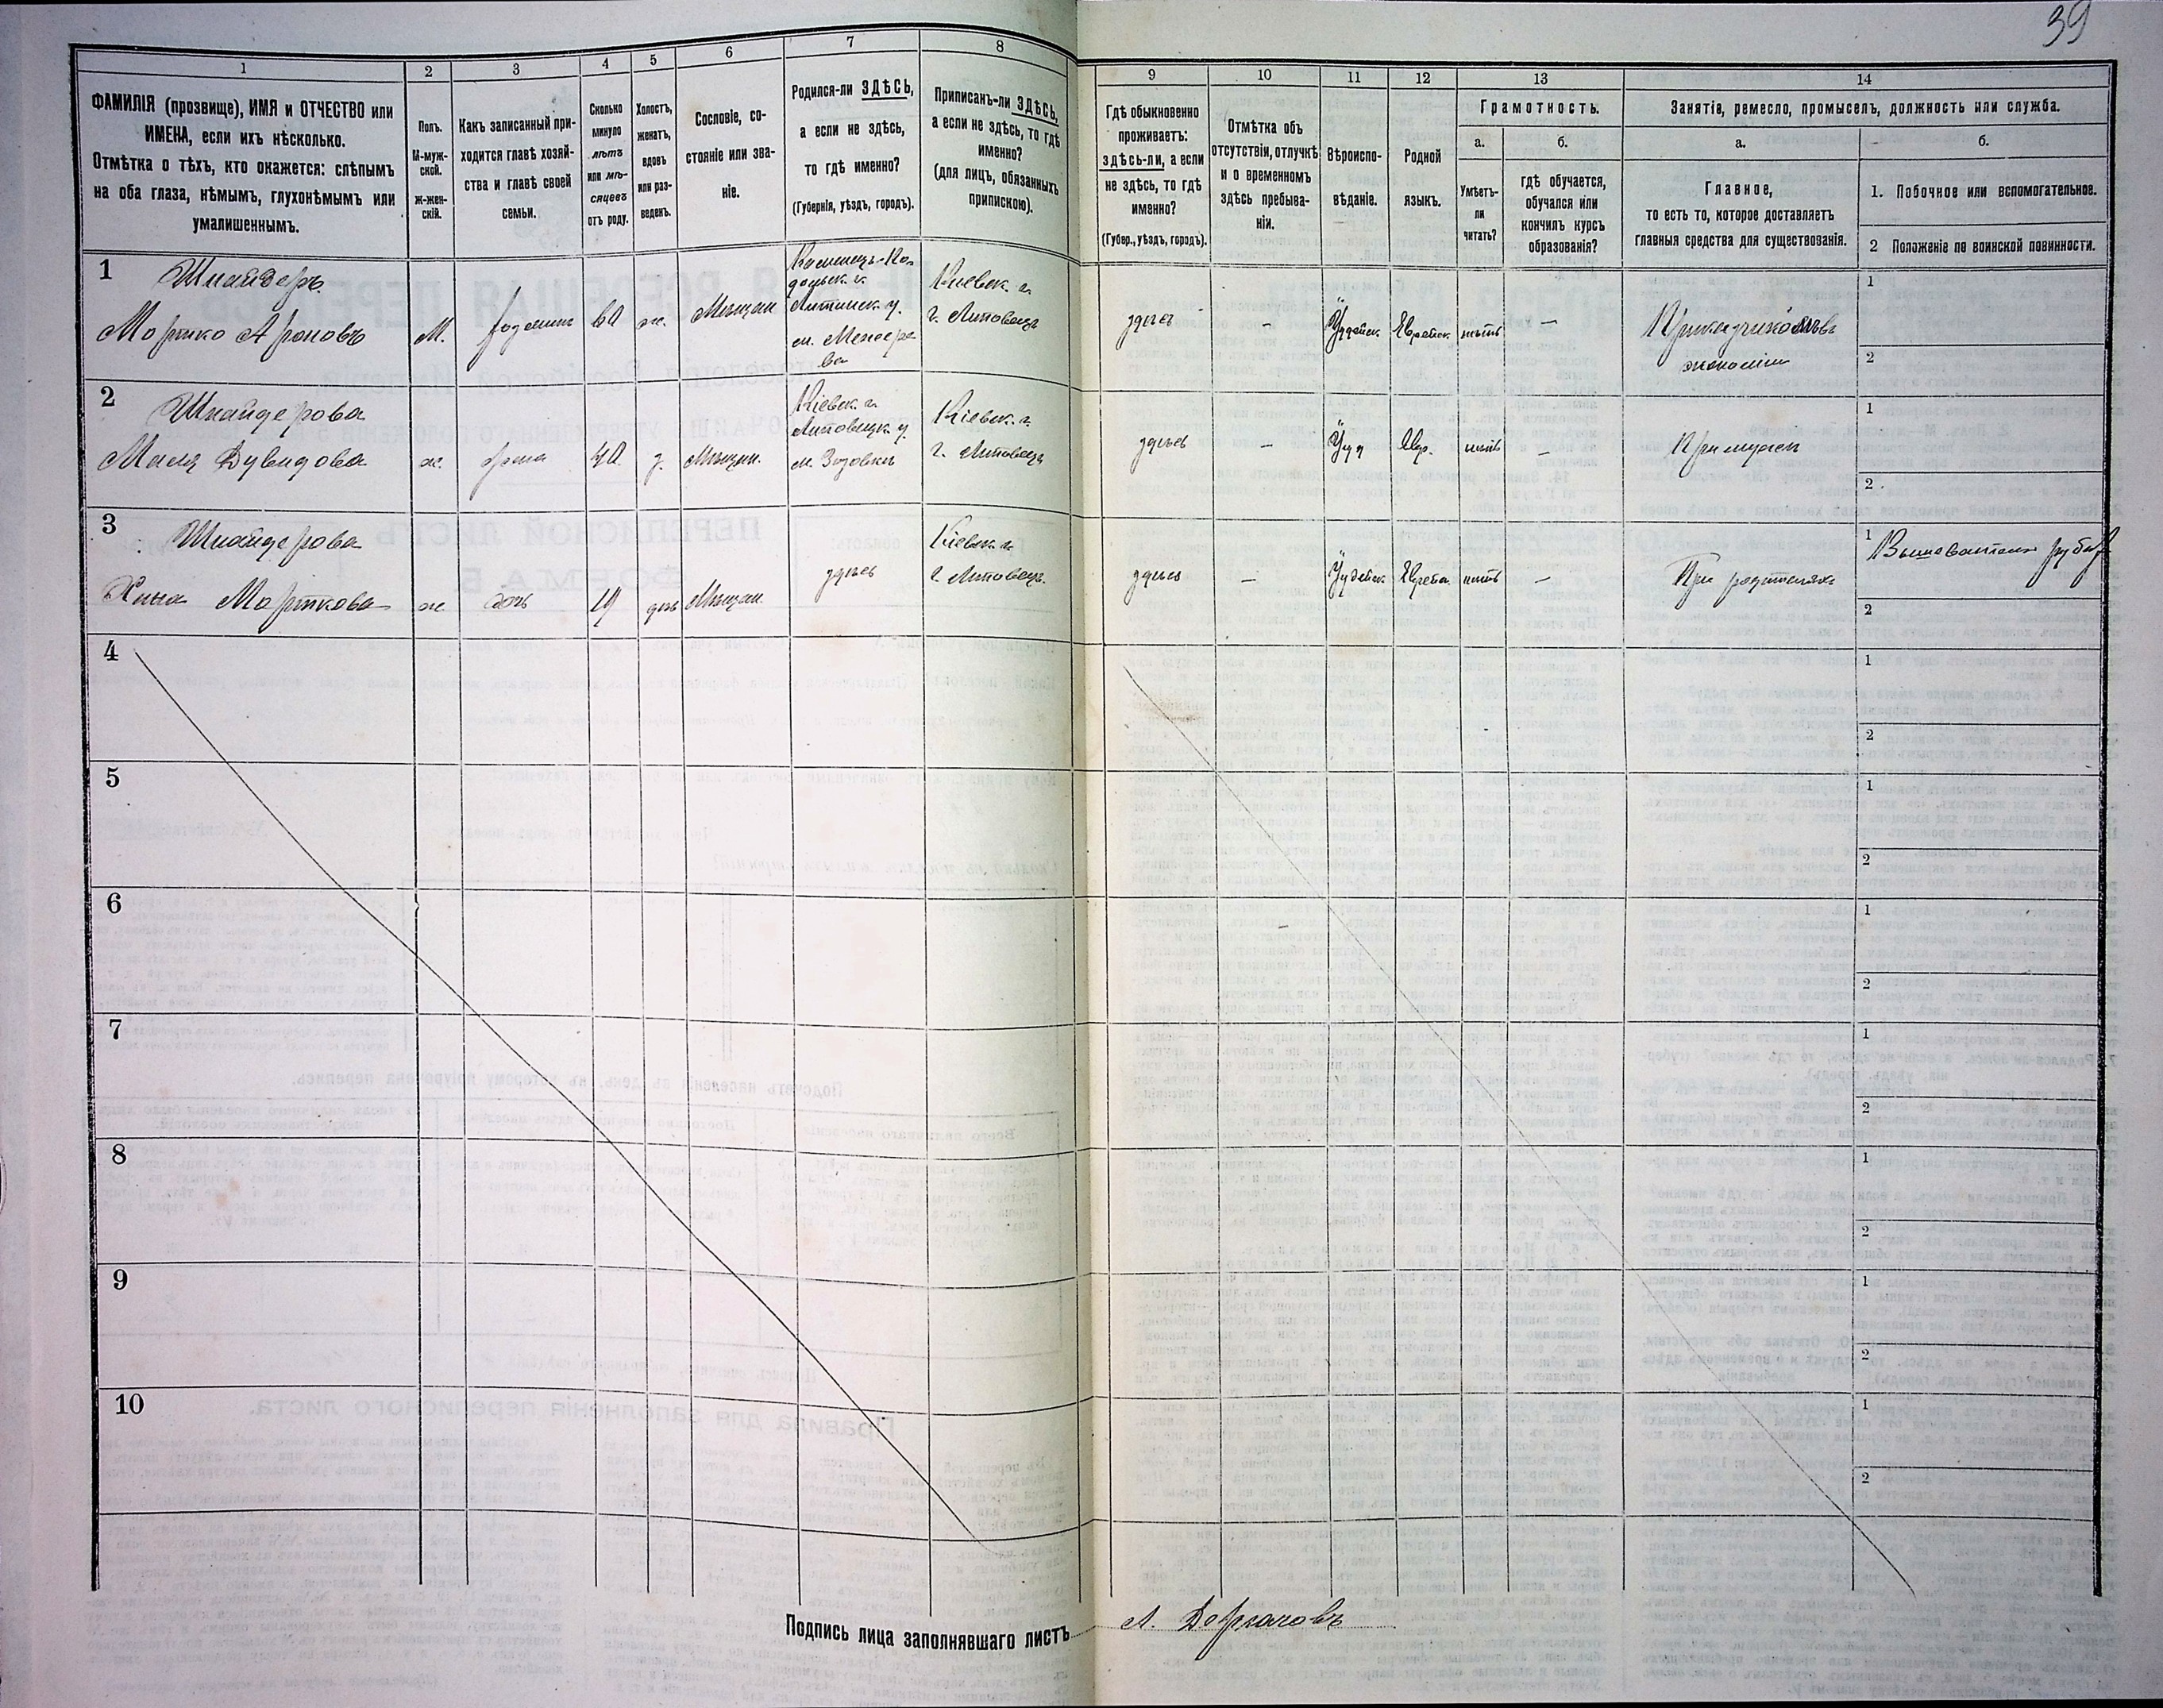 39
1
2
3
4
5
6
7
8
9
10
11
12
13
14
ФАМИЛІЯ (прозвище), ИМЯ и ОТЧЕСТВО или
ИМЕНА, если ихъ нѣсколько.
Отмѣтка о тѣхъ, кто окажется: слѣпымъ
на оба глаза, нѣмымъ, глухонѣмымъ или
умалишеннымъ.
Полъ.
М-муж-
ской.
ж-жен-
скій.
Какъ записанный при-
ходится главѣ хозяй-
ства и главѣ своей
семьи.
Сколько
минуло
лѣтъ
или мѣ-
сяцевъ
отъ роду.
Холостъ,
женатъ,
вдовъ
или раз-
веденъ.
Сословіе, со-
стояніе или зва-
ніе.
Родился-ли ЗДѢСЬ,
а если не здѣсь,
то гдѣ именно?
(Губернія, уѣздъ, городъ).
Приписанъ-ли ЗДѢСЬ,
а если не здѣсь, то гдѣ
именно?
(для лицъ, обязанныхъ
припискою).
Гдѣ обыкновенно
проживаетъ:
здѣсь-ли, а если
не здѣсь, то гдѣ
именно?
(Губер., уѣздъ, городъ).
Отмѣтка объ
отсутствіи, отлучкѣ
и о временномъ
здѣсь пребыва-
ніи.
Вѣроиспо-
вѣданіе.
Родной
языкъ.
Грамотность.
а.
Умѣетъ-
ли
читать?
б.
гдѣ обучается,
обучался или
кончилъ курсъ
образованія?
Занятіе, ремесло, промыселъ, должность или служба.
а.
Главное,
то есть то, которое доставляетъ
главныя средства для существованія.
б.
1. Побочное или вспомогательное.
2 Положеніе по воинской повинности.
1
Шнайдеръ
Мортко Ароновъ
М.
хозяинъ
60
ж.
Мѣщан
Каменецъ-По-
дольск. г.
Литинск у.
м. Межиро
ва
Кіевск. г.
г. Липовецъ
здѣсь
–
Іудейск
Еврейск
нѣтъ
–
экономіи
1
2
2
Шнайдерова
Маля Дувидова
ж.
жена
40
з.
Мѣщан.
Кіевск. г.
Липовецк у.
м. Зозовкѣ
Кіевск. г.
г. Липовецъ
здѣсь
–
Іуд
Евр.
нѣтъ
–
При мужѣ
1
2
3
Шнайдерова
Хына Морткова
ж
дочь
19
дѣв
Мѣщан.
здѣсь
Кіевск. г.
г. Липовецъ.
здѣсь
–
Іудейск
Еврейск
нѣтъ
–
При родителяхъ
1
2
4
1
2
5
1
2
6
1
2
7
1
2
8
1
2
9
1
2
10
1
2
Подпись лица заполнявшаго листъ